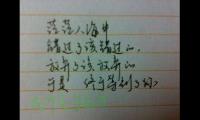 茫茫人海中
错过了该错过的，
放弃了该放弃的
于是 终于等到了你